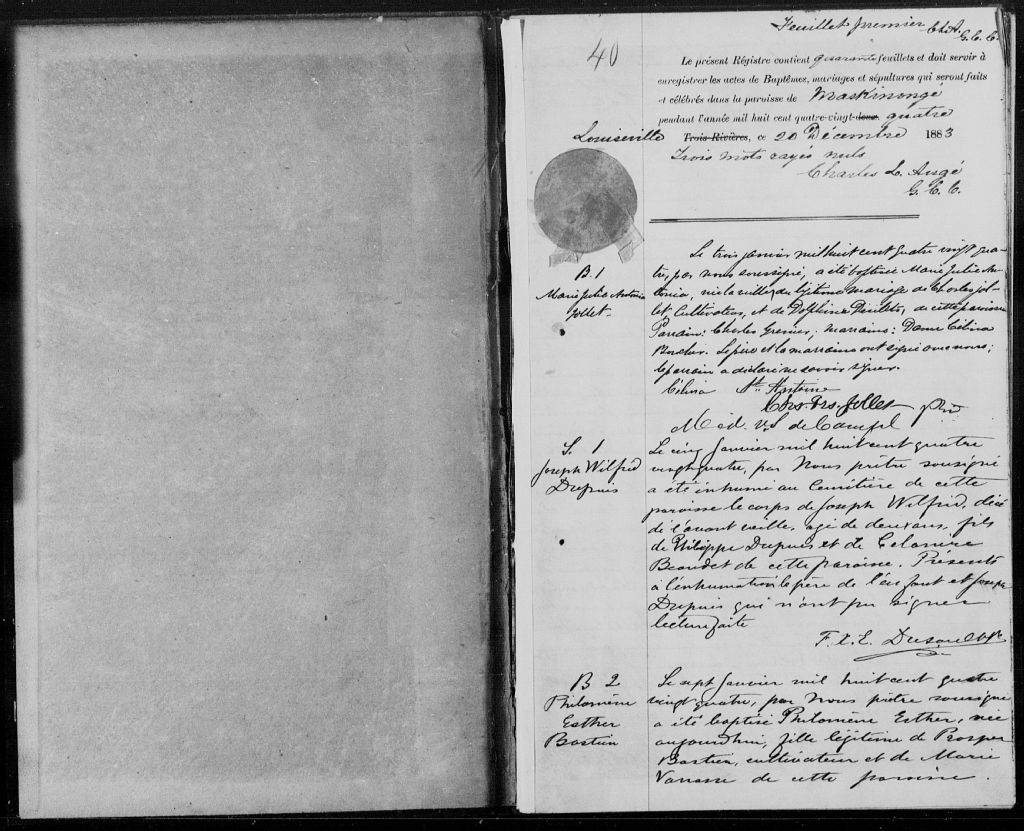 Feuillet premier Ch.A.
G. C. C.
40
Le présent Régistre contient quarante feuillets et doit servir à
enregistrer les actes de Baptêmes, mariages et sépultures qui seront faits
et célébrés dans la paroisse de Maskinongé
pendant l'année mil huit cent quatre-vingt-deux. quatre
Louiseville Trois-Rivières, ce 20 Décembre 1883
Trois mots rayés nuls
Charles L. Augé
G. C. C.
B. 1
Marie Julie Antonia
Jollet
Le trois janvier mil huit cent quatre vingt qua-
tre, par nous soussigné, a été baptisée Marie Julie An-
tonia, née la veille, du légitime mariage de Charles Jol-
let, Cultivateur, et de Delphine, de cette paroisse
Parrain: Charles Grenier; marraine: Dame Célina
Boucher. Le père et la marraine ont signé avec nous;
le parrain a déclaré ne savoir signer.
Célina St. Antoine
Chs. Frs. Jollet
S. 1
Joseph Wilfrid
Dupuis
Le cinq Janvier mil huit cent quatre
vingt quatre, par Nous prêtre soussigné
a été inhumé au Cimetière de cette
paroisse le corps de Joseph Wilfrid, décé
dé l'avant veille, agé de deux ans, fils
de Philippe Dupuis et de Celanire
Beaudet de cette paroisse. Présents
à l'inhumation le père de l'enfant et Joseph
Dupuis qui n'ont pu signer
lecture faite
F. X. E. Dusault Ptre
B 2
Philomène
Esther
Bastien
Le sept Janvier mil huit cent quatre
vingt quatre, par Nous prêtre soussigné
a été baptisé Philomène Esther, née
aujourd'hui, fille légitime de Prosper
Bastien, cultivateur et de Marie
Vanasse de cette paroisse.